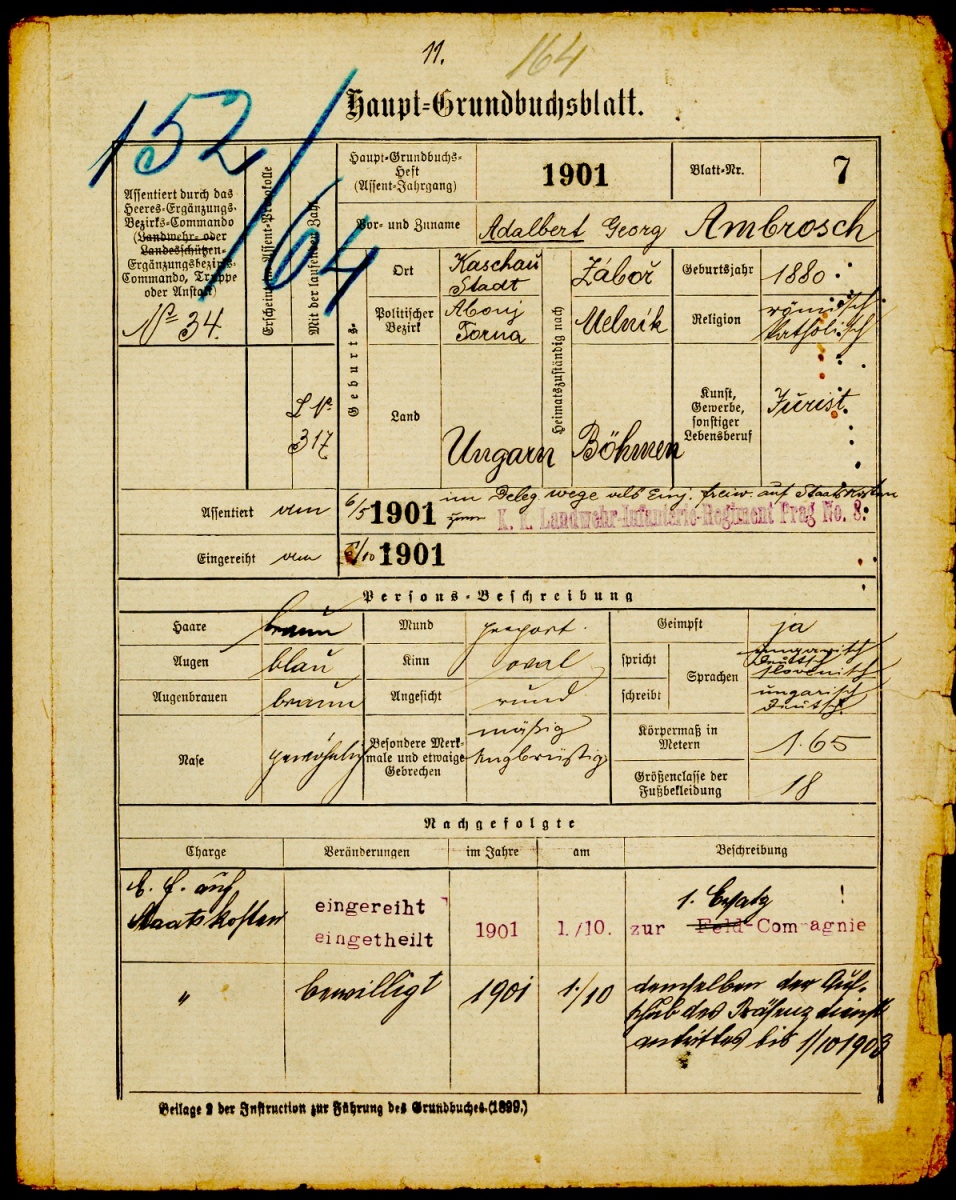 11.
164
152/164
Haupt-Grundbuchsblatt.
Assentiert durch das
Heeres-Ergänzungs-
Bezirks-Commando
(Landwehr- oder
Landesschützen-
Ergänzungsbezirks-
Commando, Truppe
oder Anstalt)
No 34.
Erscheint im Assent-Protokolle
Mit der laufenden Zahl
317
Haupt-Grundbuchs-
Heft
(Assent-Jahrgang)
1901
Blatt-Nr.
7
Vor- und Zuname
Adalbert Georg Ambrosch
Geburts-
Ort
Kaschau
Stadt
Politischer
Bezirk
Abouj
Torna
Land
Ungarn
Heimatszuständig nach
Záboř
Melnik
Böhmen
Geburtsjahr
1880
Religion
römisch
katholisch
Kunst,
Gewerbe,
sonstiger
Lebensberuf
Jurist.
Assentiert am 6/5 1901 im Deleg. wege als Einj. freiw. auf Staatskosten
zum K. k. Landwehr-Infanterie-Regiment Prag No. 8.
Eingereiht am 1/10 1901
Persons-Beschreibung
Haare braun
Augen blau
Augenbrauen braun
Nase gewöhnlich
Mund proport.
Kinn oval
Angesicht rund
Besondere Merk-
male und etwaige
Gebrechen
mäßig
engbrüstig
Geimpft ja
spricht
schreibt
Sprachen
ungarisch
Deutsch
slovenisch
ungarisch
Deutsch.
Körpermaß in
Metern
1.65
Größenclasse der
Fußbekleidung
18
Nachgefolgte
Charge Veränderungen im Jahre am Beschreibung
E. f. auf
Staatskosten
eingereiht
eingetheilt
1901 1./10.
1. Ersatz
zur Feld-Compagnie
" bewilligt 1901 1./10
demselben der Auf-
schub des Präsenzdienst
antrittes bis 1/10 1903
Beilage 2 der Instruction zur Führung des Grundbuches (1899.)